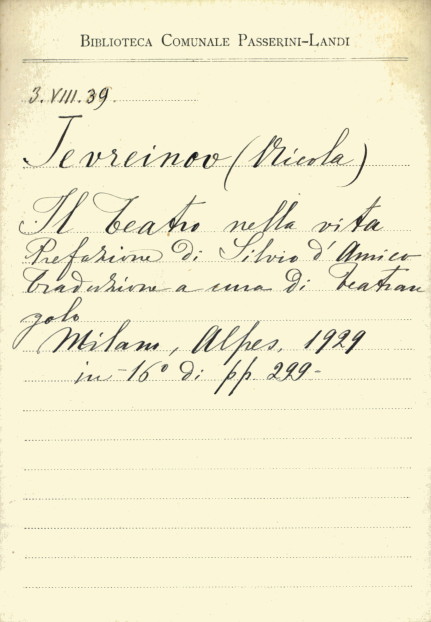 BIBLIOTECA COMUNALE PASSERINI-LANDI
3.VIII.39.
Jevreinov (Nicola)
Il Teatro nella vita
Prefazione di Silvio d'Amico
Traduzione a cura di Teatran
golo
Milano, Alpes, 1929
in-16º di pp. 299-